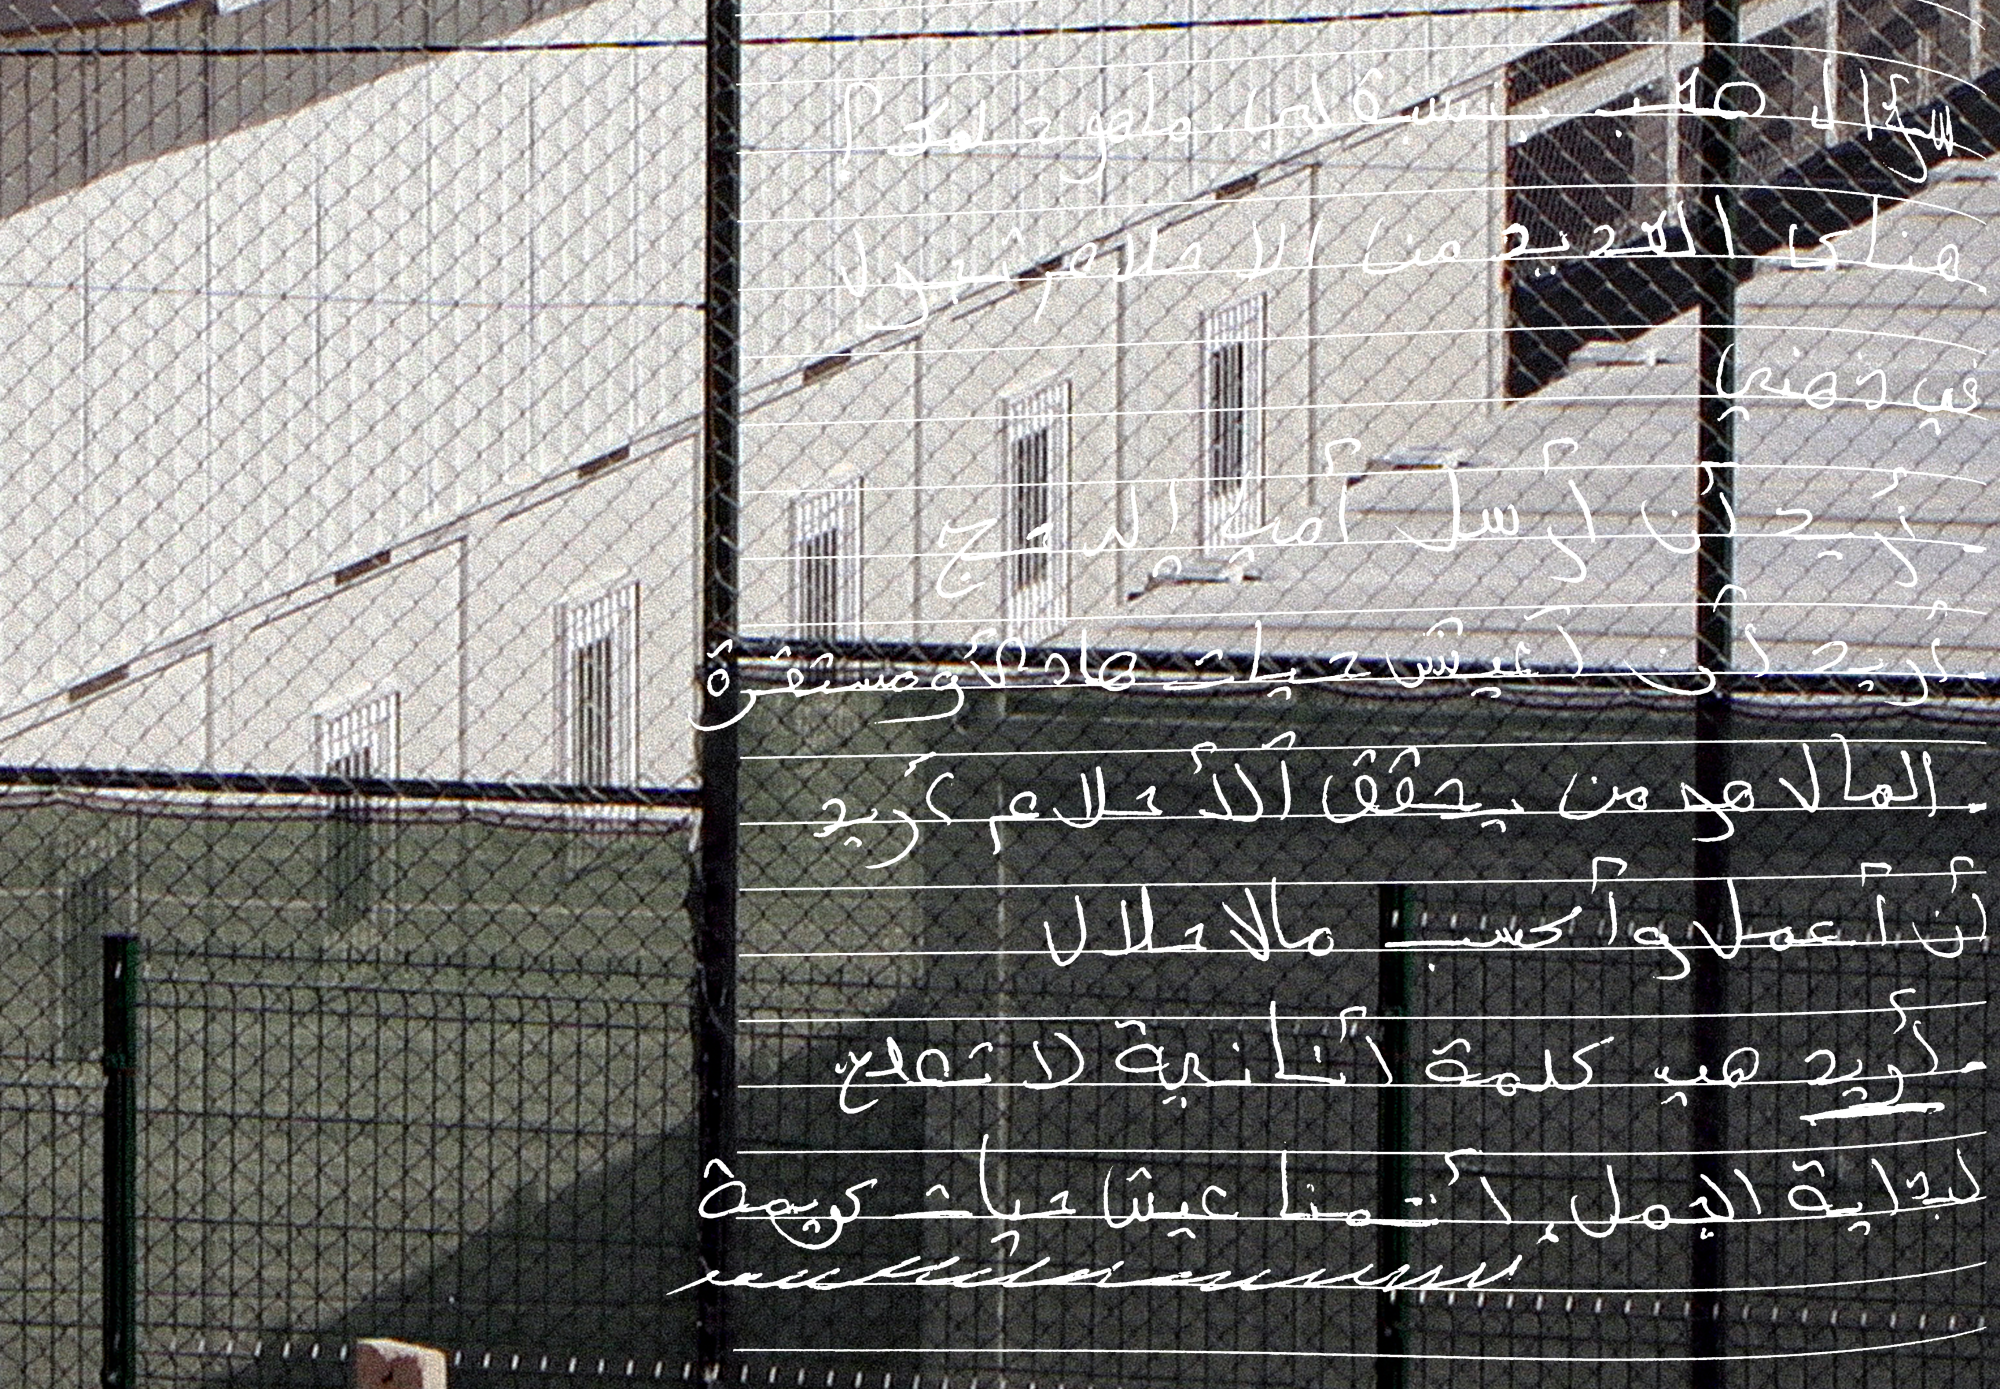 سؤال صعب بنسبة لي ماهو حلمك؟
هناك العديد من الاحلام تجول
في ذهني
- أريد أن أرسل أمي إلى الحج
- أريد أن أعيش حيات هادئة ومستقرة
- المال هو من يحقق الأحلام أريد
أن أعمل وأكسب مالا حلال
- أريد هي كلمة أنانية لا تصلح
لبداية الجمل. أتمنا عيش حيات كريمة